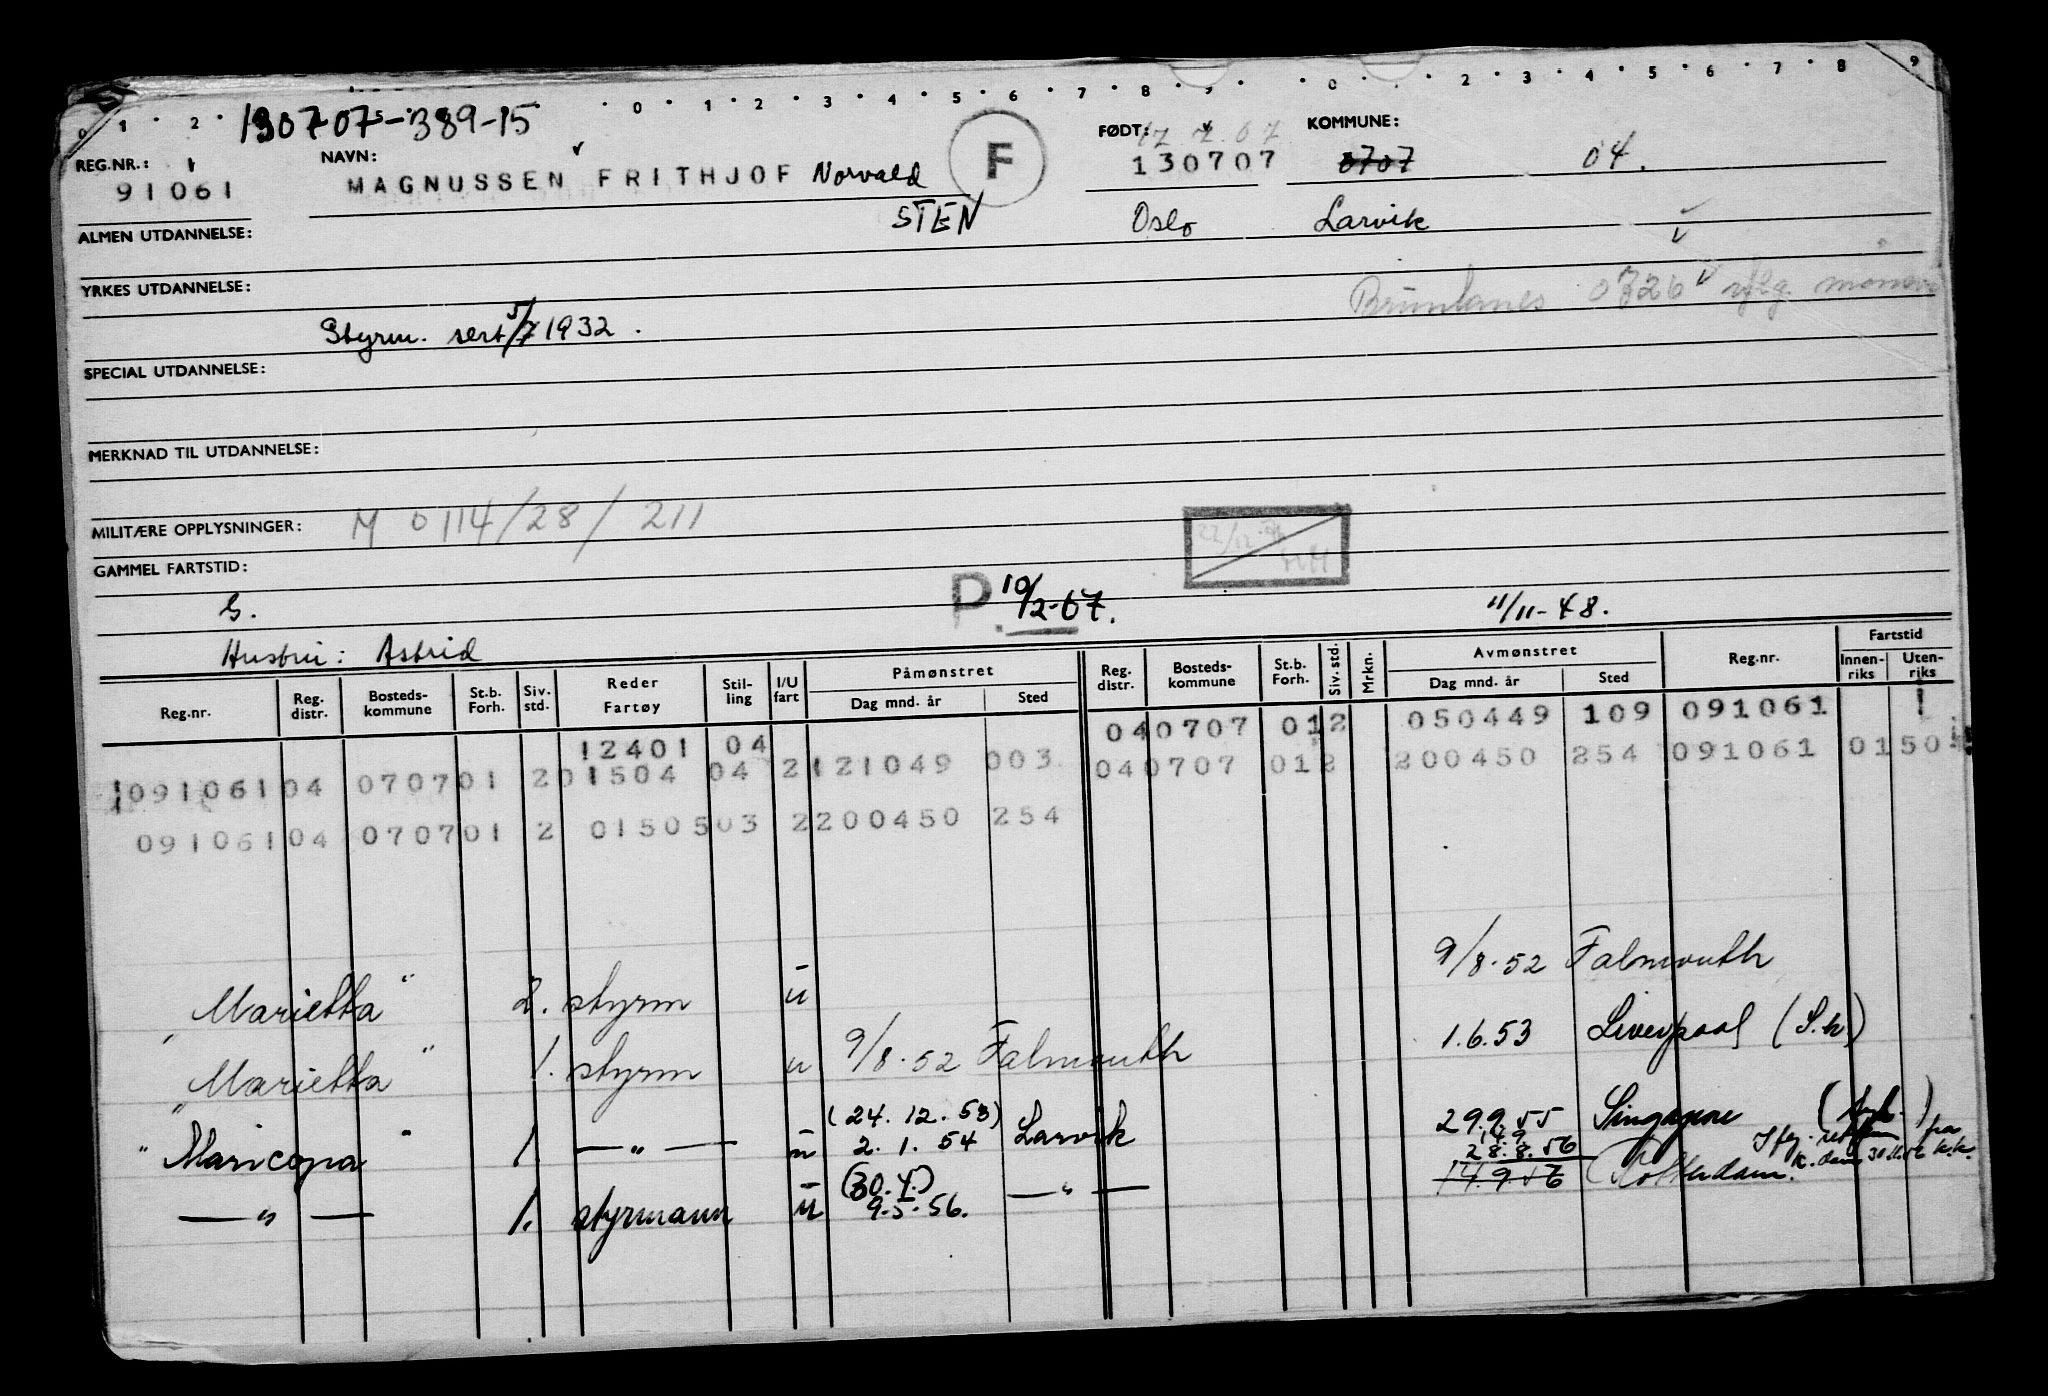 0 1 2 0 1 2 3 4 5 6 7 8 9 0 2 3 4 5 6 7 8 9
130707-389-15
REG.NR.: NAVN: FØDT: 12 7.07 KOMMUNE:
91061 MAGNUSSEN FRITHJOF Norvald F 130707 0707 04.
STEN Oslo Larvik
ALMEN UTDANNELSE:
YRKES UTDANNELSE: Brunlanes 0726
Styrm. sert 5/7 1932.
SPECIAL UTDANNELSE:
MERKNAD TIL UTDANNELSE:
MILITÆRE OPPLYSNINGER: M 0114/28/211
GAMMEL FARTSTID:
G. P. 10/2-67. 11/11-48.
Hustru: Astrid
Reg.nr. Reg. distr. Bosteds-kommune St.b. Forh. Siv. std. Reder Fartøy Stil-ling I/U fart Påmønstret Dag mnd. år Sted Reg. distr. Bosteds-kommune St.b. Forh. Siv. std. Mrkn. Avmønstret Dag mnd. år Sted Reg.nr. Fartstid Innen-riks Uten-riks
12401 04 040707 012 050449 109 091061 1
09106104 070701 201504 04 2 121049 003 040707 012 200450 254 091061 01 50
09106104 070701 2 01505 03 2 200450 254
"Marietta" 2. styrm u 9/8.52 Falmouth
"Marietta" 1. styrm u 9/8.52 Falmouth 1.6.53 Liverpool (S.h)
"Maricopa" 1. —"— u (24.12.53) 2.1.54 Larvik 29.9.55 Singapore
—"— 1. styrmann u (30.4.) 9.5.56. —"— 14.9 28.8.56 14.9.56 Rotterdam.